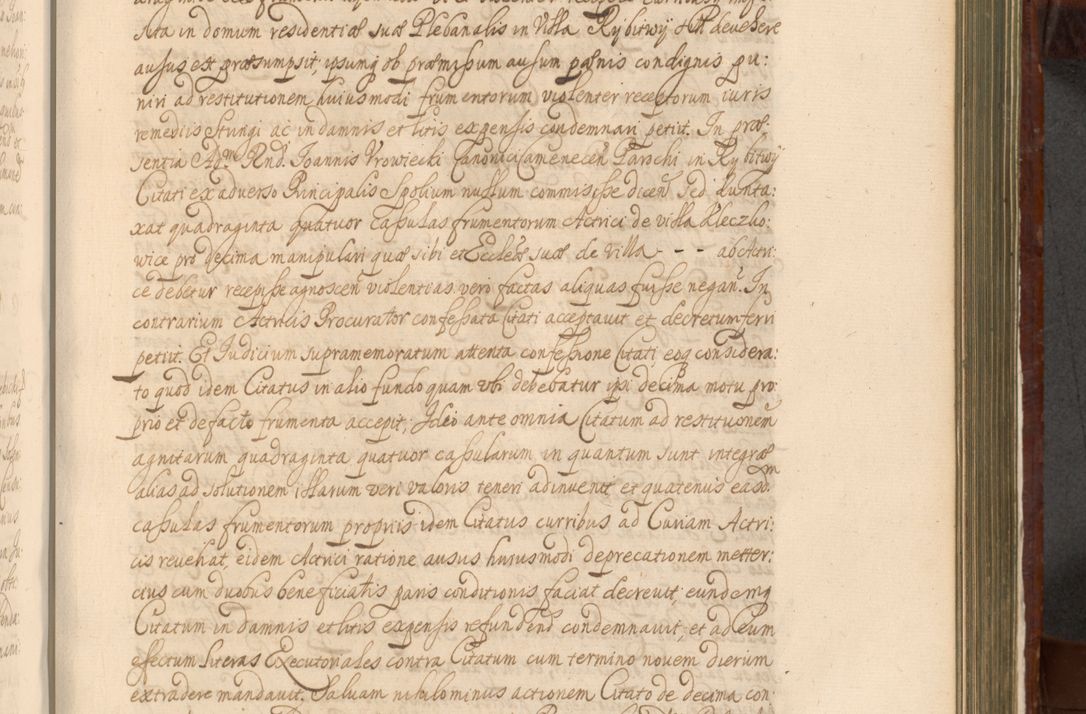 sita in domum residentiæ suæ Plebanalis in Villa Rybitwÿ devehere
ausus est præsumpsit, ipsumq ob præmissum ausum pœnis condignis pu:
niri ad restitutionem huiusmodi frumentorum violenter receptorum iuris
remediis stringi ac in damnis et litis expensis condemnari petiit. In præ:
sentia Adm. Rnd. Ioannis Vrowiecki Canonici Camenecen Parochi in Rybitwÿ
Citati ex adverso Principalis Spolium nullum commisisse dicen. Sed dunta:
xat quadraginta quatuor cassulas frumentorum Actrici de villa Kleczko:
wice pro decima manipulari quæ sibi et Eccl(esi)æ suæ de villa - - - ab Actri:
ce debetur recepisse agnoscen violentias vero factas aliquas fuisse negan. In
contrarium Actricis Procurator confessata Citati acceptavit et decretum ferri
petiit. Et Iudicium supramemoratum attenta confessione Citati eoq considera:
to quod idem Citatus in alio fundo quam ubi debebatur ipsi decima motu pro
prio et de facto frumenta accepit; Ideo ante omnia Citatum ad restitutionem
agnitarum quadraginta quatuor cassularum in quantum sunt integræ
alias ad solutionem illarum veri valoris teneri adinvenit et quatenus easdm
cassulas frumentorum propriis idem Citatus curribus ad Curiam Actri:
cis revehat, eidem Actrici ratione ausus huiusmodi deprecationem metter:
tius cum duobus beneficiatis paris conditionis faciat decrevit; eundemq
Citatum in damnis et litis expensis refundend condemnavit, et ad eum
effectum literas Executoriales contra Citatum cum termino novem dierum
extradere mandavit. Salvam nihilominus actionem Citato de decima con: